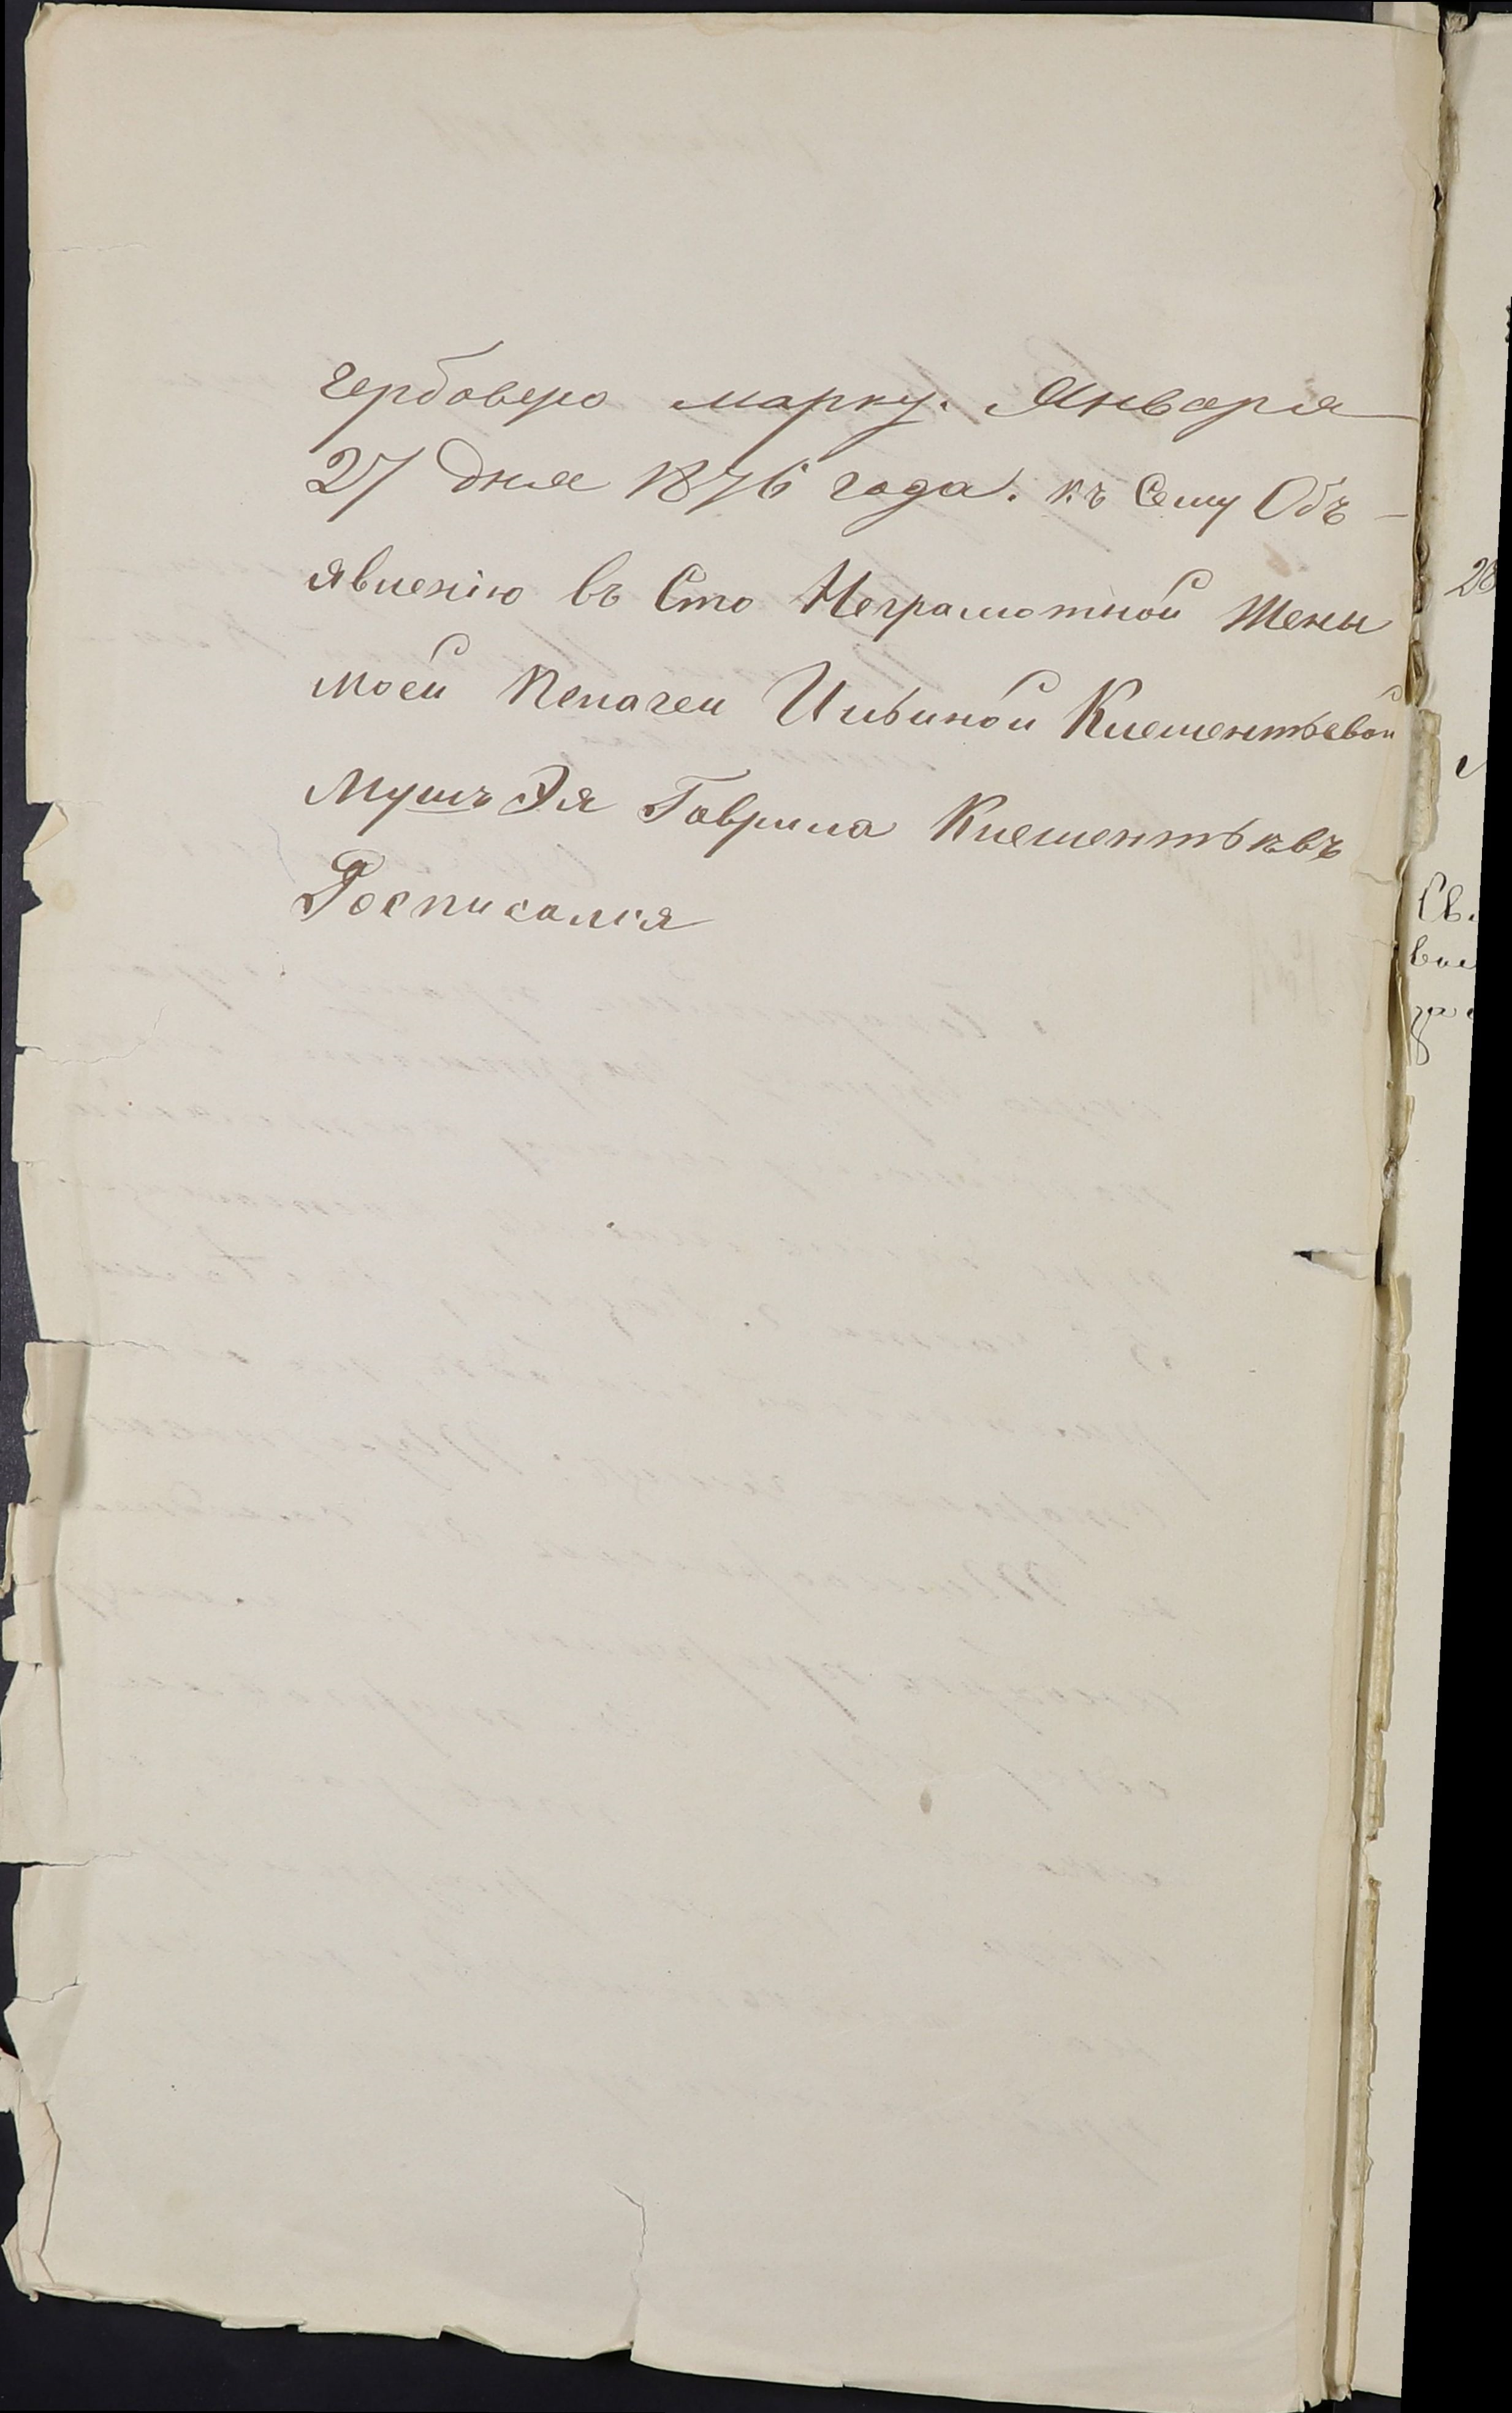 гербовую марку. Января
27 дня 1876 года. къ Сему Объ-
явленію въ Сто Неграмотной Жены
моей Пелагеи Ильиной Клементьевой
Мушъ Эя Гаврила Клементьевъ
Росписался
28